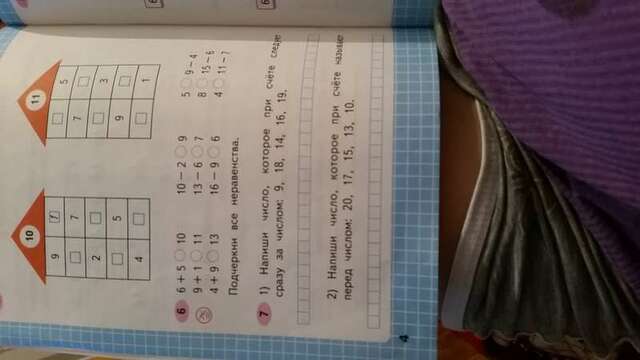 10
11
9 1
5
7
7
2
3
5
9
4
1
6 6 + 5 ○ 10 10 − 2 ○ 9 5 ○ 9 − 4
9 + 1 ○ 11 13 − 6 ○ 7 8 ○ 15 − 6
4 + 9 ○ 13 16 − 9 ○ 6 4 ○ 11 − 7
Подчеркни все неравенства.
7 1) Напиши число, которое при счёте следует
сразу за числом: 9, 18, 14, 16, 19.
2) Напиши число, которое при счёте называют
перед числом: 20, 17, 15, 13, 10.
4